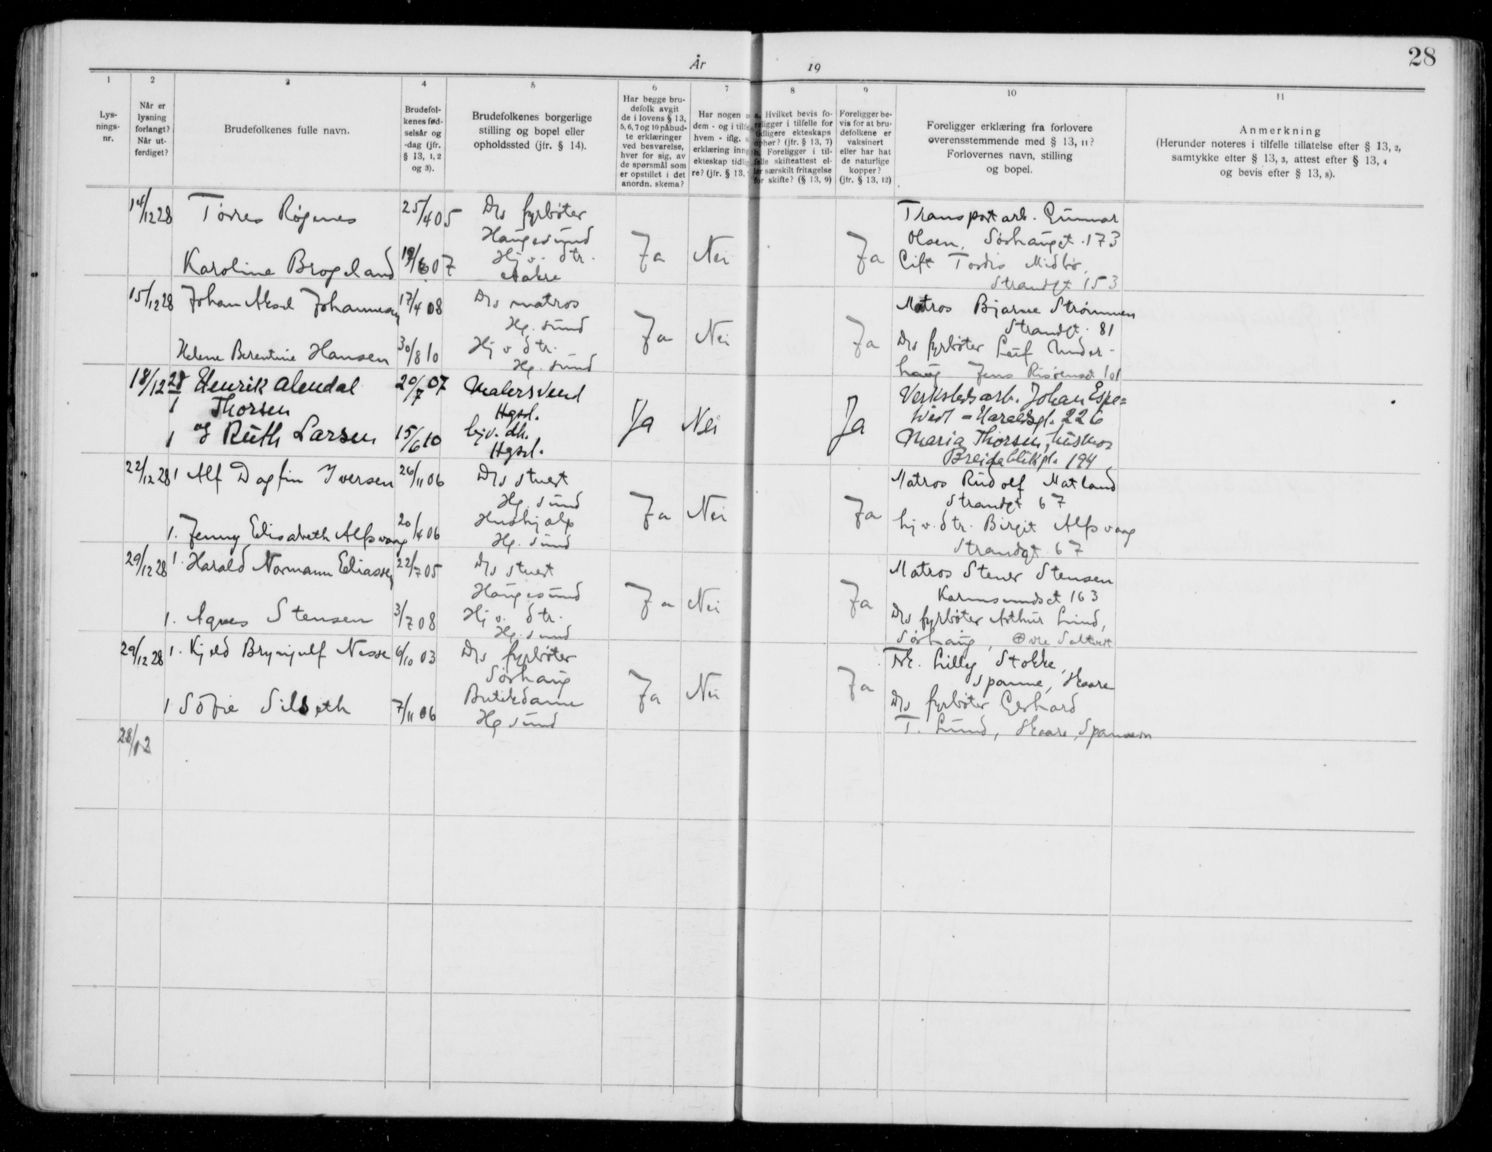 År 19
28
1
Lys-
nings-
nr.
2
Når er
lysning
forlangt?
Når ut-
ferdiget?
3
Brudefolkenes fulle navn.
4
Brudefol-
kenes fød-
selsår og
-dag (jfr.
§ 13, 1, 2
og 3).
5
Brudefolkenes borgerlige
stilling og bopel eller
opholdssted (jfr. § 14).
6
Har begge bru-
defolk avgit
de i lovens § 13,
5, 6, 7 og 10 påbud-
te erklæringer
ved besvarelse,
hver for sig, av
de spørsmål som
er opstillet i det
anordn. skema?
7
Har nogen
dem - og i tilfe
hvem - iflg.
erklæring inng
ekteskap tidli
re? (jfr. § 13,
8
Hvilket bevis fo-
religger i tilfelle for
tidligere ekteskaps
opher? (jfr. § 13, 7)
Foreligger i til-
felle skifteattest el-
ler særskilt fritagelse
for skifte? (§ 13, 9)
9
Foreligger be-
vis for at bru-
defolkene er
vaksinert
eller har hat
de naturlige
kopper?
(jfr. § 13, 12)
10
Foreligger erklæring fra forlovere
overensstemmende med § 13, 11?
Forlovernes navn, stilling
og bopel.
11
Anmerkning
(Herunder noteres i tilfelle tillatelse efter § 13, 2,
samtykke efter § 13, 3, attest efter § 13, 4
og bevis efter § 13, 8).
14/12 28 Torres Røgenes 25/4 05 Ds fyrbøter
Haugesund
Karoline Brogeland 19/6 07 Hj v. dtr.
Aakre
Ja Nei Ja
Transportarb. Gunnar
Olsen, Sørhauggt. 173
Gift Tordis Midbø,
Strandgt 153
15/12 28 Johan Aksel Johannesen 17/4 08 Ds matros
Hg. sund
Helene Berentine Hansen 30/8 10 Hj v dtr.
Hg. sund
Ja Nei Ja
Matros Bjarne Strømmen
Strandgt. 81
Ds fyrbøter Leif Under-
haug Jens Risøensgt 101
18/12 28 1 Henrik Alendal
Thorsen 20/7 07 Malersvend
Hgsd.
1 og Ruth Larsen 15/6 10 hjv. dh.
Hgsd.
Ja Nei Ja
Verkstedsarb. Johan Espe=
tvedt - Haraldsgt. 226
Maria Thorsen, husmor
Breidablikgt. 194
22/12 28 1 Alf Dagfin Iversen 26/11 06 Ds stuert
Hg. sund
1. Jenny Elisabeth Alfsvaag 20/4 06 Hushjelp
Hg. sund
Ja Nei Ja
Matros Rudolf Matland
Strandgt 67
hj v. dtr. Birgit Alfsvaag
Strandgt. 67
29/12 28 1. Harald Normann Eliassen 22/7 05 Ds stuert
Haugesund
1. Agnes Stensen 3/7 08 Hj v. dtr.
Hg. sund
Ja Nei Ja
Matros Stener Stensen
Karmsundsgt 163
Ds fyrbøter Arthur Lund,
Sørhaug,
29/12 28 1. Kjeld Brynjulf Nesse 6/10 03 Ds fyrbøter
Sørhaug
1 Sofie Silseth 7/11 06 Butikdame
Hg sund
Ja Nei Ja
Frk. Lilly Stokke,
Spanne, Skaare
Ds fyrbøter Gerhard
T. Lund, Skaare, Spannen
28/12